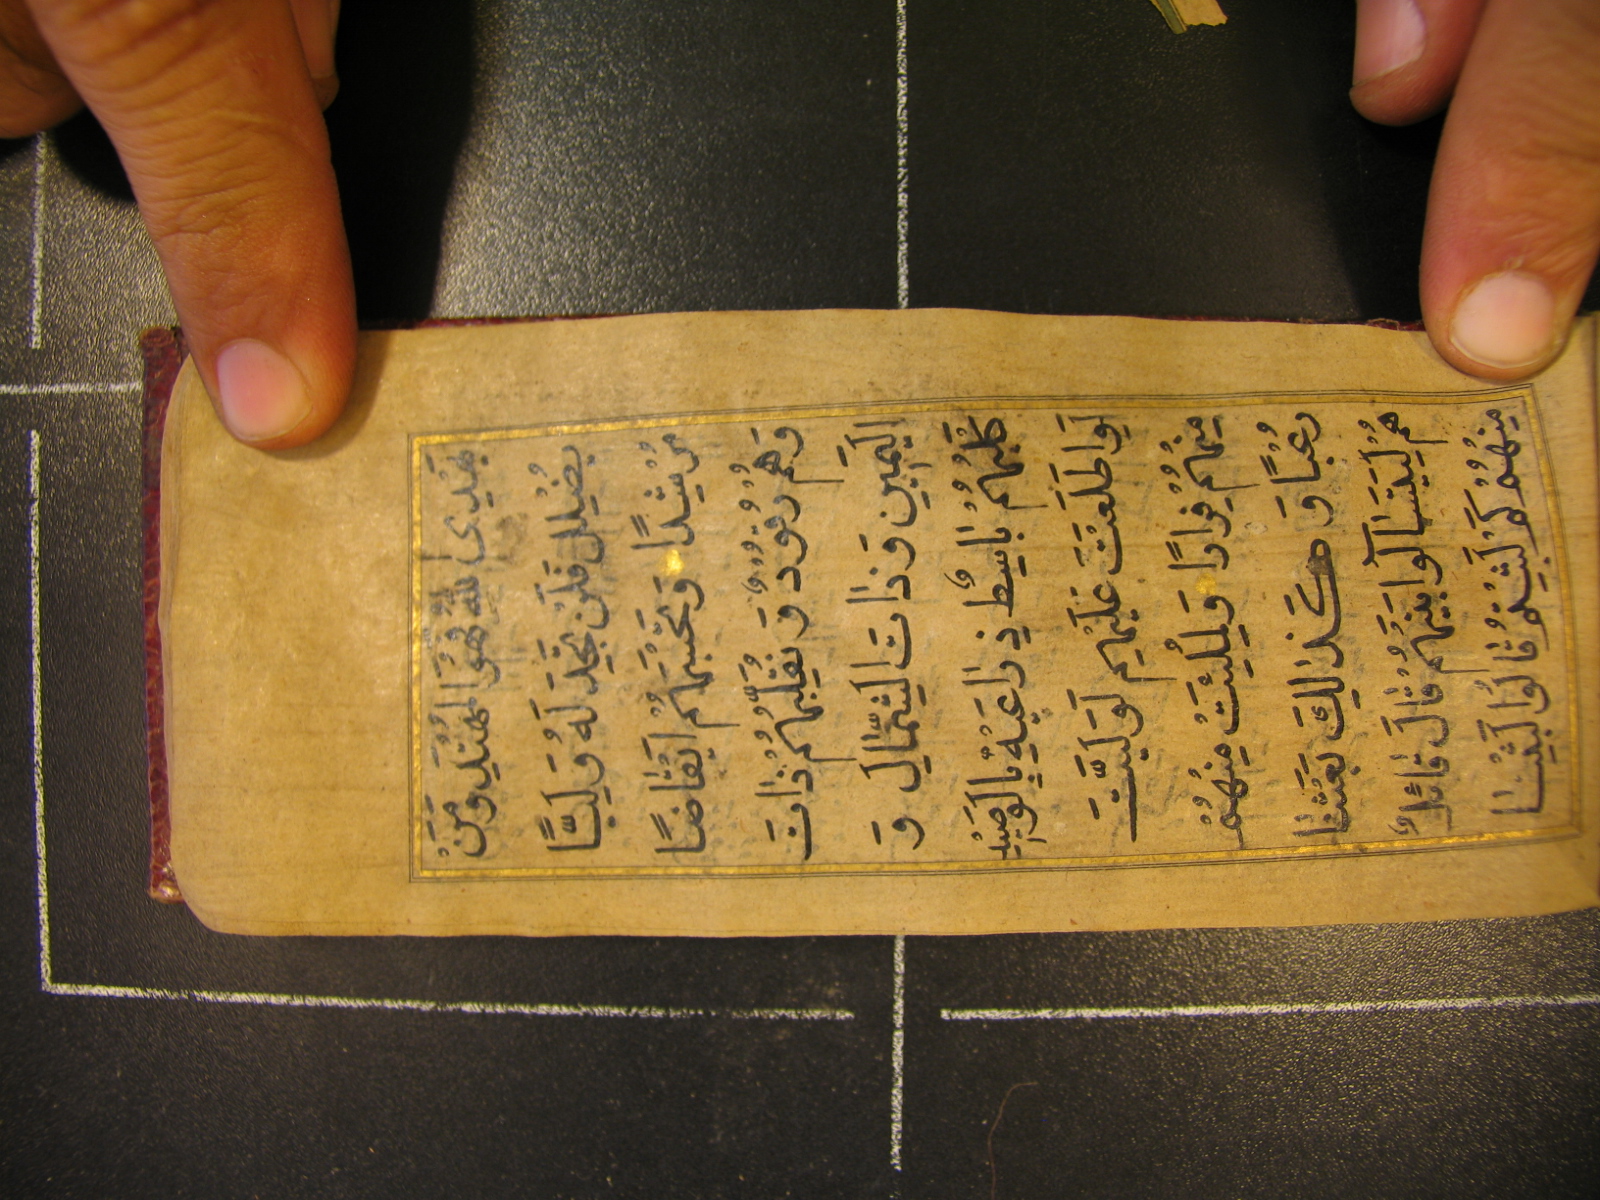 يَهْدِى اللهُ فَهُوَ الْمُهْتَدِ وَمَنْ
يُضْلِلْ فَلَنْ تَجِدَ لَهُ وَلِيًّا
مُرْشِدًا وَتَحْسَبُهُمْ اَيْقَاظًا
وَهُمْ رُقُودٌ وَنُقَلِّبُهُمْ ذَاتَ
الْيَمِينِ وَذَاتَ الشِّمَالِ وَ
كَلْبُهُمْ بَاسِطٌ ذِرَاعَيْهِ بِالْوَصِيدِ
لَوِ اطَّلَعْتَ عَلَيْهِمْ لَوَلَّيْتَ
مِنْهُمْ فِرَارًا وَلَمُلِئْتَ مِنْهُمْ
رُعْبًا وَكَذٰلِكَ بَعَثْنَا
هُمْ لِيَتَسَآءَلُوا بَيْنَهُمْ قَالَ قَائِلٌ
مِنْهُمْ كَمْ لَبِثْتُمْ قَالُوا لَبِثْنَا